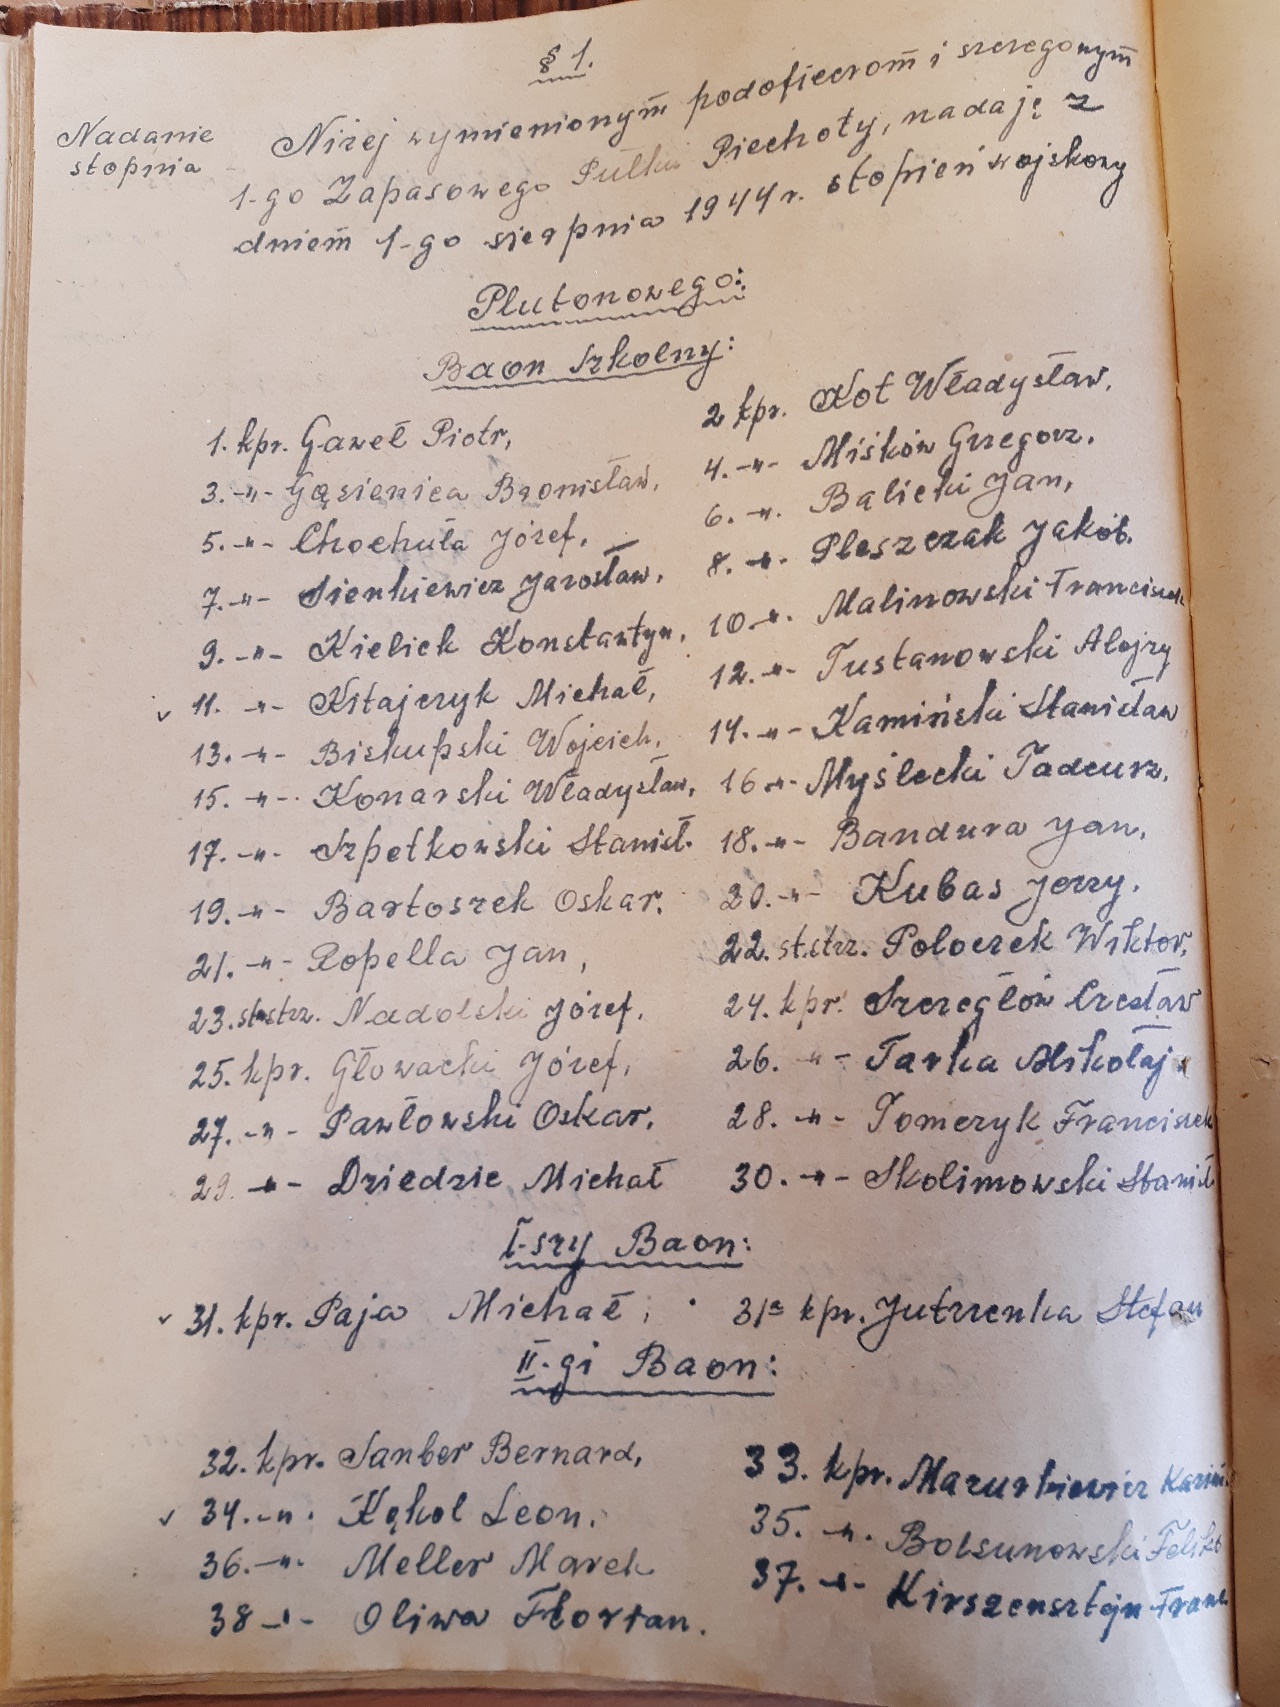 § 1.
Nadanie
stopnia
Niżej wymienionym podoficerom i szeregowym
1-go Zapasowego Pułku Piechoty, nadaję z
dniem 1-go sierpnia 1944 r. stopień wojskowy
Plutonowego:
Baon Szkolny:
1. kpr. Gaweł Piotr, 2 kpr. Kot Władysław.
3. -"- Gąsienica Bronisław, 4. -"- Miśków Grzegorz.
5. -"- Chochuła Józef, 6. -"- Balicki Jan,
7. -"- Sienkiewicz Jarosław, 8. -"- Pleszczak Jakób.
9. -"- Kielick Konstantyn, 10 -"- Malinowski Franciszek
11. -"- Kitajczyk Michał, 12. -"- Tustanowski Alojzy
13. -"- Biskupski Wojciech, 14. -"- Kamiński Stanisław
15. -"- Konarski Władysław, 16 -"- Myślecki Tadeusz.
17. -"- Szpetkowski Stanisł. 18. -"- Bandura Jan,
19. -"- Bartoszek Oskar. 20. -"- Kubas Jerzy.
21. -"- Ropella Jan, 22. st.strz. Poloczek Wiktor,
23. st.strz. Nadolski Józef. 24. kpr. Szeregłów Czesław
25. kpr. Głowacki Józef, 26. -"- Tarka Mikołaj
27. -"- Pawłowski Oskar, 28. -"- Tomczyk Franciszek
29. -"- Dziedzic Michał 30. -"- Skolimowski Stanisł.
I-szy Baon:
31. kpr. Paja Michał, 31a kpr. Jutrzenka Stefan
II-gi Baon:
32. kpr. Sanber Bernard, 33. kpr. Mazurkiewicz Kazim.
34. -"- Kąkol Leon. 35. -"- Bolsunowski Feliks
36. -"- Meller Marek 37. -"- Kirszensztejn Franc.
38 -"- Oliwa Florian.